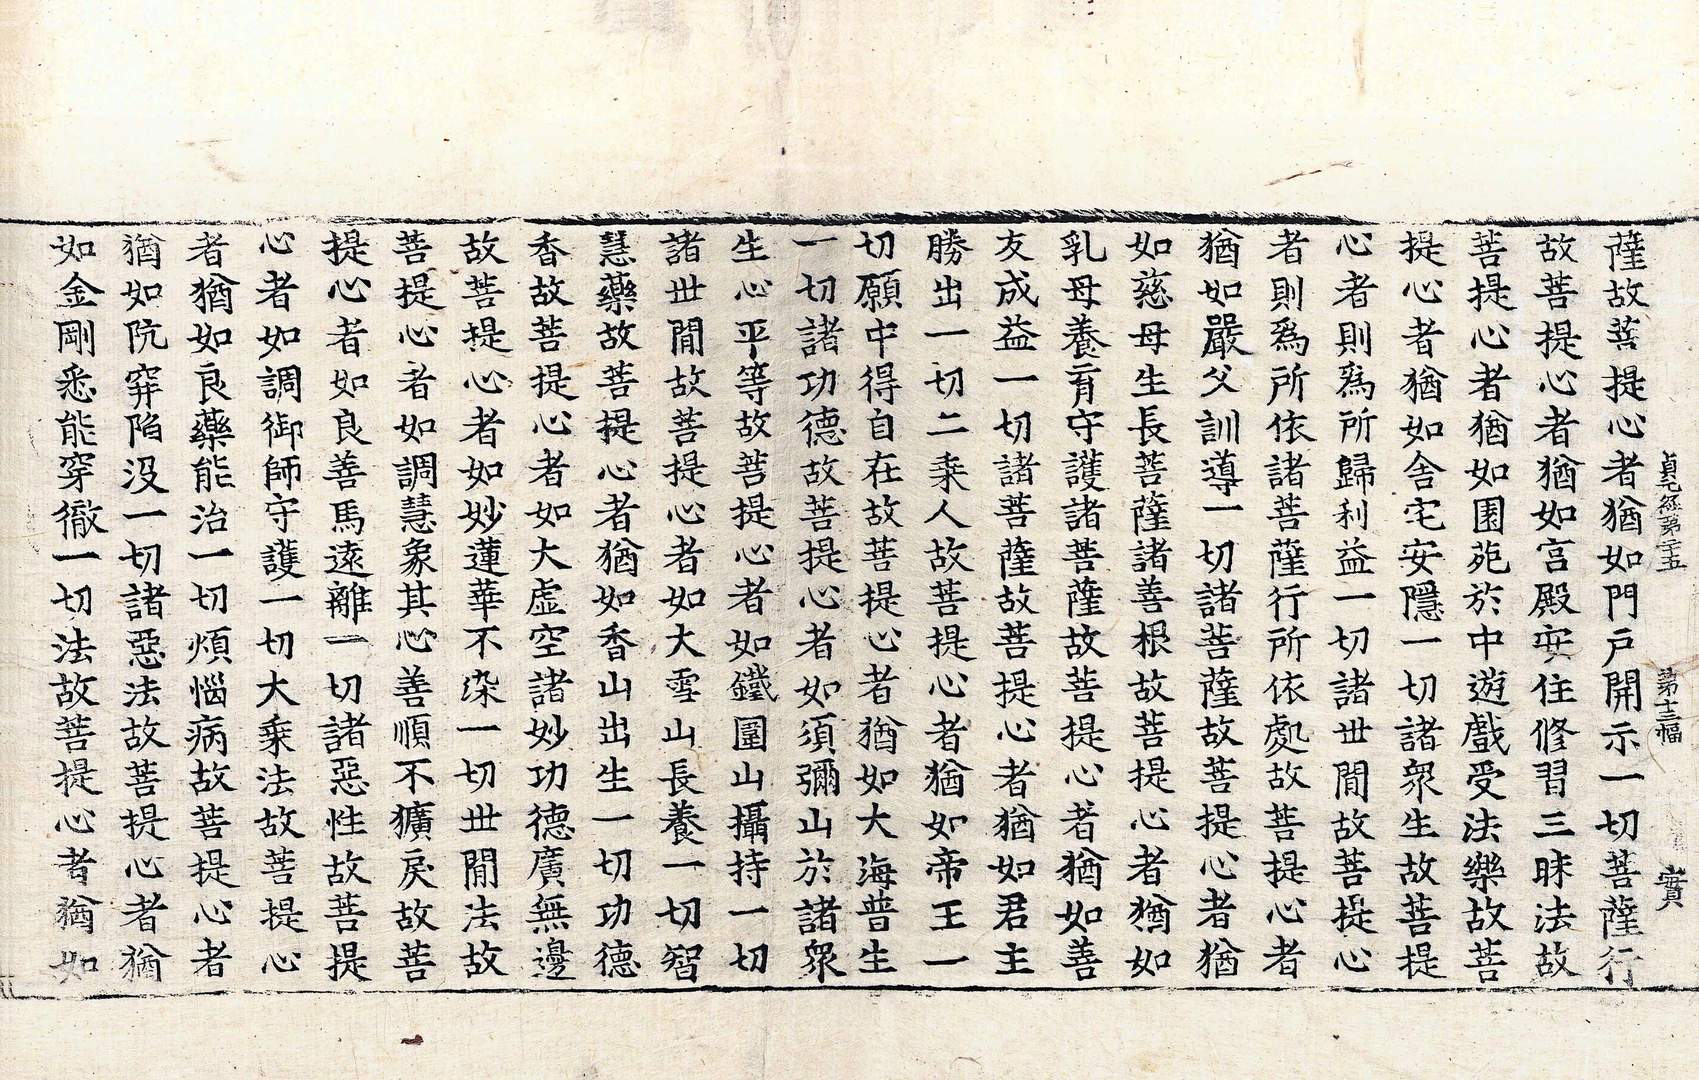 貞元經第三十五 第十三幅 實
薩故菩提心者猶如門戶開示一切菩薩行
故菩提心者猶如宮殿安住修習三昧法故
菩提心者猶如園苑於中遊戲受法樂故菩
提心者猶如舍宅安隱一切諸眾生故菩提
心者則爲所歸利益一切諸世閒故菩提心
者則爲所依諸菩薩行所依處故菩提心者
猶如嚴父訓導一切諸菩薩故菩提心者猶
如慈母生長菩薩諸善根故菩提心者猶如
乳母養育守護諸菩薩故菩提心者猶如善
友成益一切諸菩薩故菩提心者猶如君主
勝出一切二乘人故菩提心者猶如帝王一
切願中得自在故菩提心者猶如大海普生
一切諸功德故菩提心者如須彌山於諸眾
生心平等故菩提心者如鐵圍山攝持一切
諸世閒故菩提心者如大雪山長養一切智
慧藥故菩提心者猶如香山出生一切功德
香故菩提心者如大虛空諸妙功德廣無邊
故菩提心者如妙蓮華不染一切世閒法故
菩提心者如調慧象其心善順不獷戾故菩
提心者如良善馬遠離一切諸惡性故菩提
心者如調御師守護一切大乘法故菩提心
者猶如良藥能治一切煩惱病故菩提心者
猶如阬穽陷沒一切諸惡法故菩提心者猶
如金剛悉能穿徹一切法故菩提心者猶如